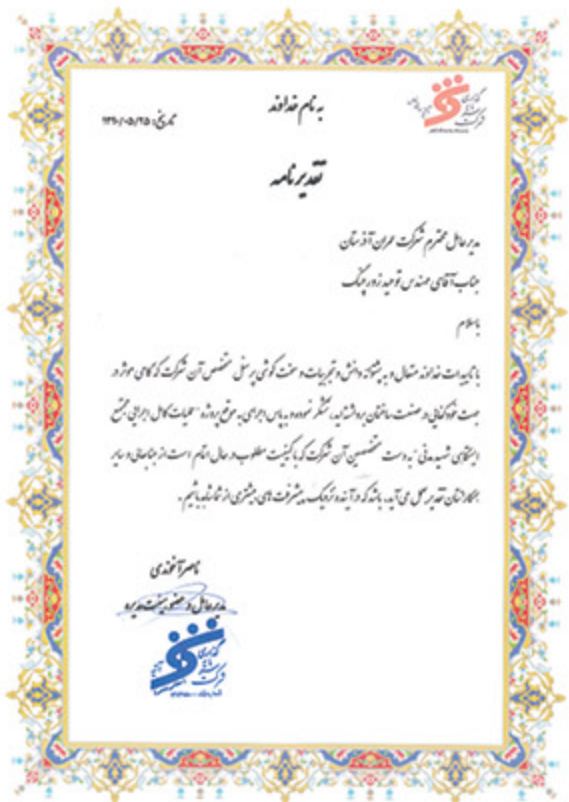 به نام خداوند
تاریخ: ۱۳۹۰/۰۵/۲۵
تقدیرنامه
مدیر عامل محترم شرکت عمران آذرستان
جناب آقای مهندس توحید زورچنگ
باسلام
با تاییدات خداوند متعال و به پشتوانه دانش و تجربیات و سخت کوشی پرسنل متخصص آن شرکت که گامی موثر در
جهت خودکفایی در صنعت ساختمان برداشته اید، تشکر نموده و به پاس اجرای به موقع پروژه "عملیات کامل اجرایی مجتمع
ایستگاهی شهید مدنی" به دست متخصصین آن شرکت که با کیفیت مطلوب در حال اتمام است از جنابعالی و سایر
همکارانتان تقدیر بعمل می آید. باشد که در آینده نزدیک به پیشرفت های بیشتری از شما نائل باشیم.
ناصر آخوندی
مدیرعامل و عضو هیئت مدیره